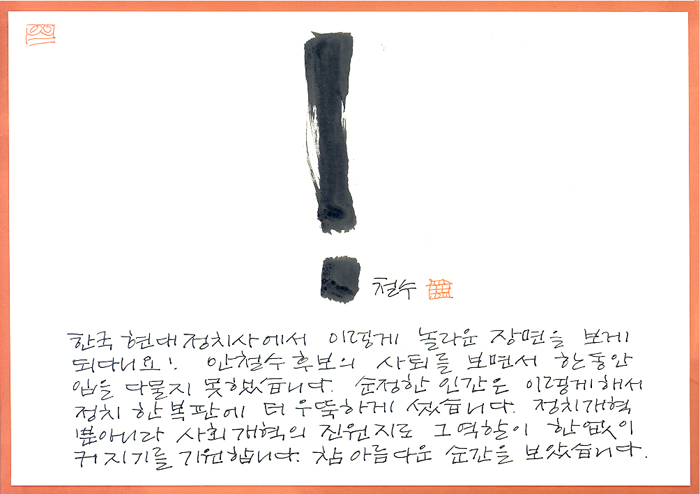 !
철수
한국 현대 정치사에서 이렇게 놀라운 장면을 보게
되다니요! 안철수 후보의 사퇴를 보면서 한동안
입을 다물지 못했습니다. 순정한 인간은 이렇게 해서
정치 한복판에 더 우뚝하게 섰습니다. 정치개혁
뿐아니라 사회개혁의 진원지로 그 역할이 한없이
커지기를 기원합니다. 참 아름다운 순간을 보았습니다.